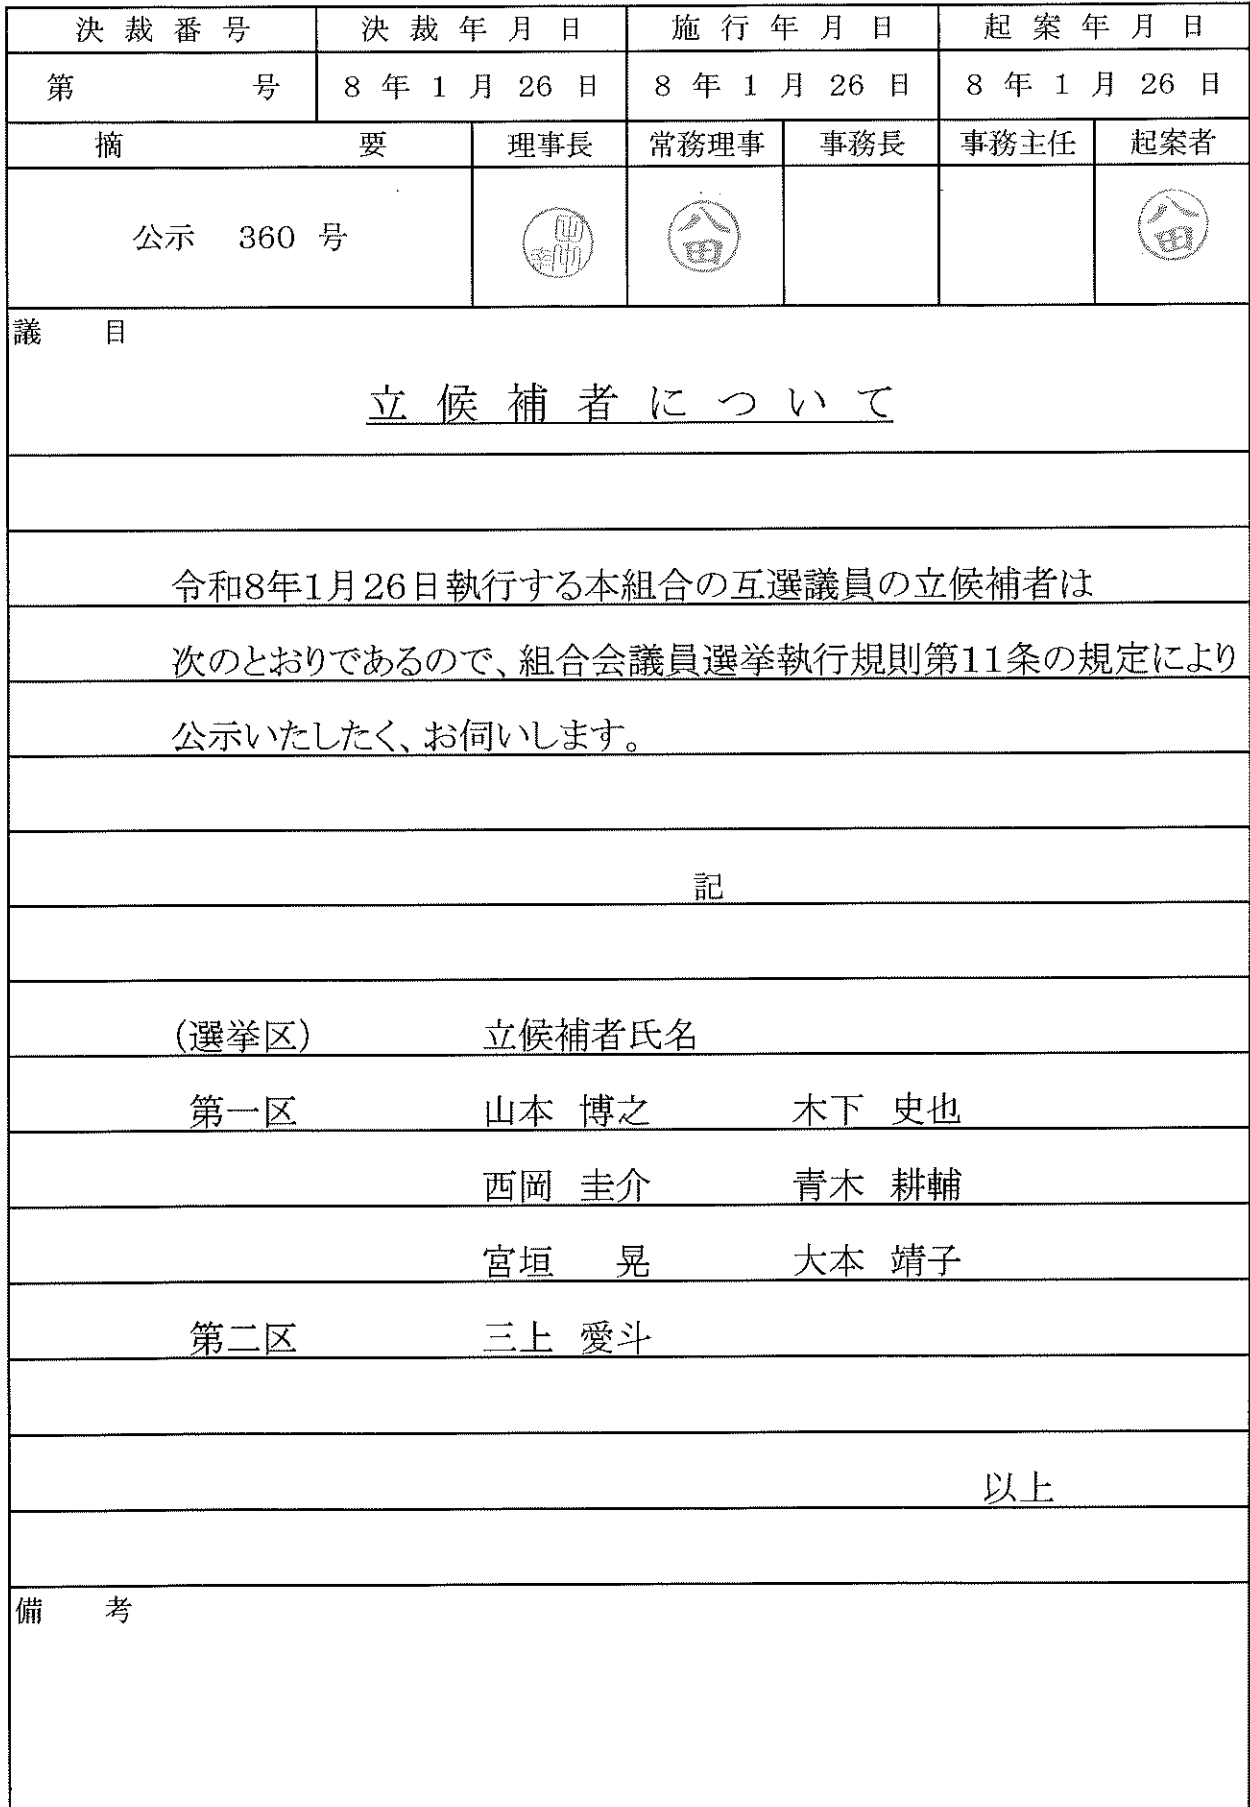 決裁番号 決裁年月日 施行年月日 起案年月日
第 号 8年1月26日 8年1月26日 8年1月26日
摘 要 理事長 常務理事 事務長 事務主任 起案者
公示 360 号 八田 八田
議 目
立候補者について
令和8年1月26日執行する本組合の互選議員の立候補者は
次のとおりであるので、組合会議員選挙執行規則第11条の規定により
公示いたしたく、お伺いします。
記
(選挙区) 立候補者氏名
第一区 山本 博之 木下 史也
西岡 圭介 青木 耕輔
宮垣 晃 大本 靖子
第二区 三上 愛斗
以上
備 考